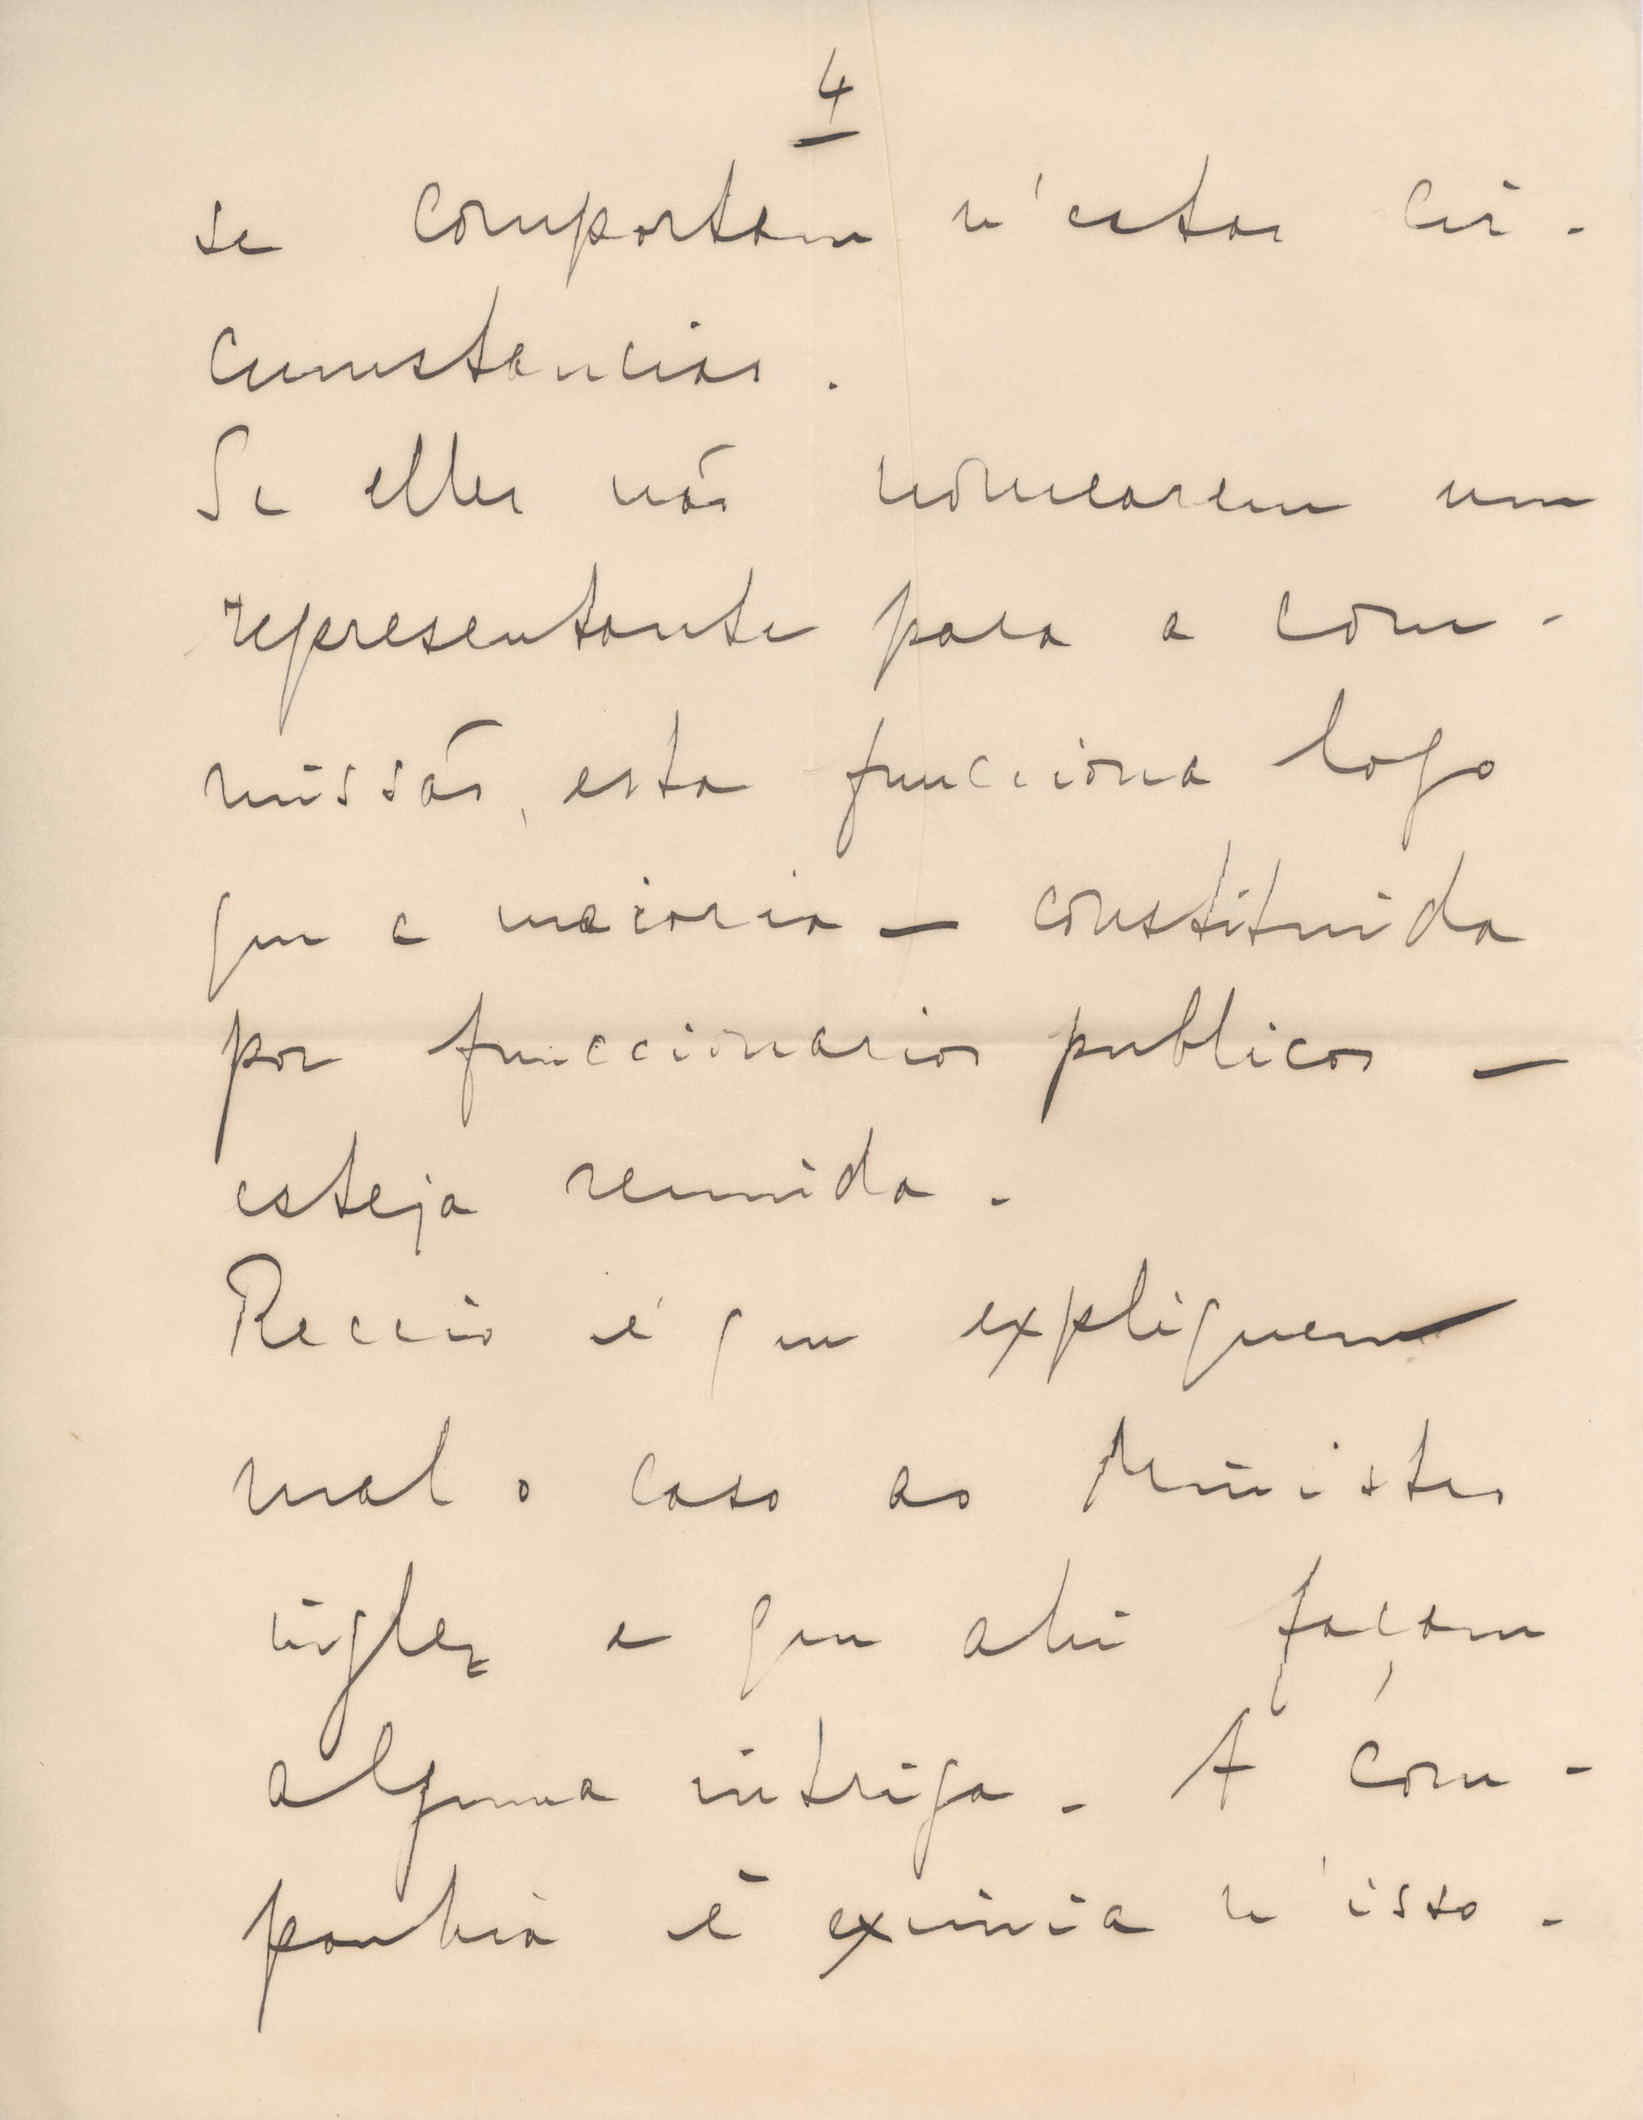 4
se comportam n'estas cir-
cumstancias.
Se elles não nomearem um
representante para a com-
missão, esta funcciona logo
que a maioria — constituida
por funccionarios publicos —
esteja reunida.
Receio é que expliquem
mal o caso ao Ministro
inglez e que ahi façam
alguma intriga. A Com-
panhia é eximia n'isso.